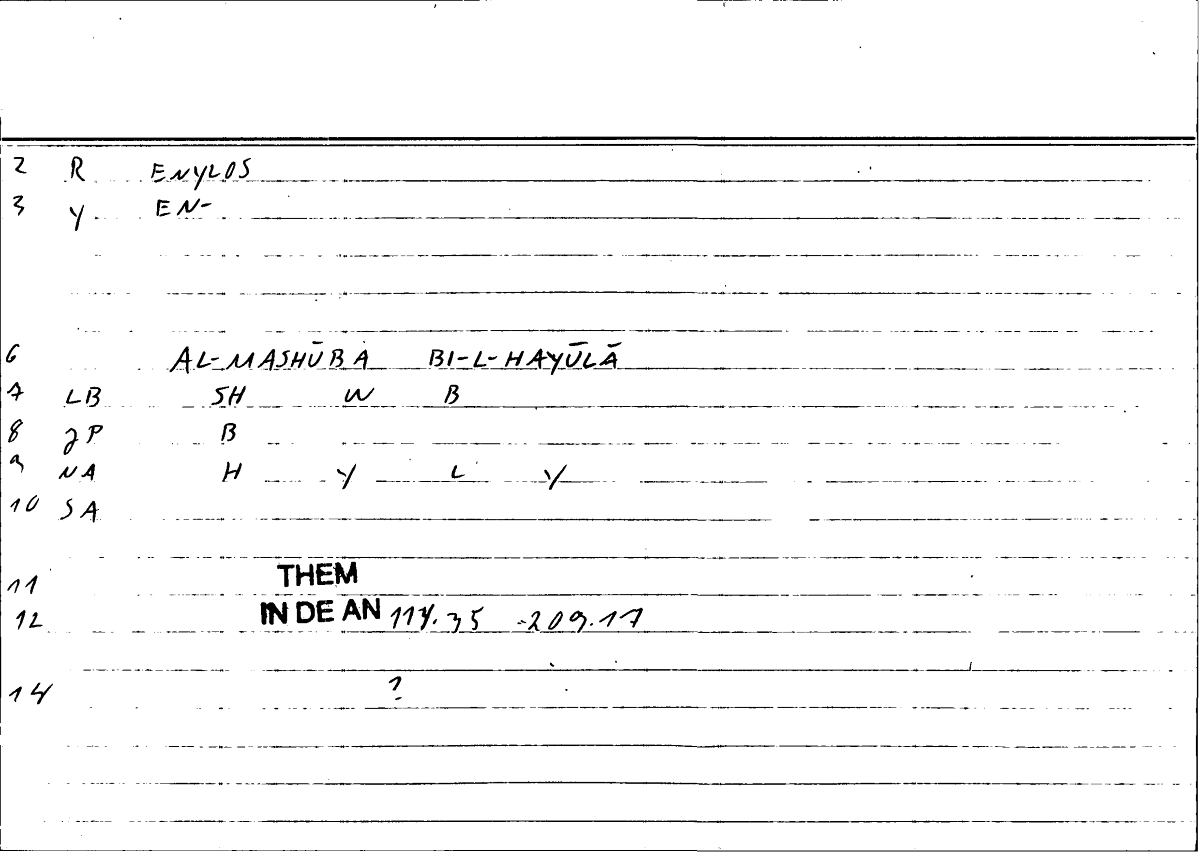 2 R ENYLOS
3 Y EN-
6 AL-MASHŪBA BI-L-HAYŪLĀ
7 LB SH W B
8 JP B
9 NA H Y L Y
10 SA
11 THEM
12 IN DE AN 114.35 -209.17
14 ?